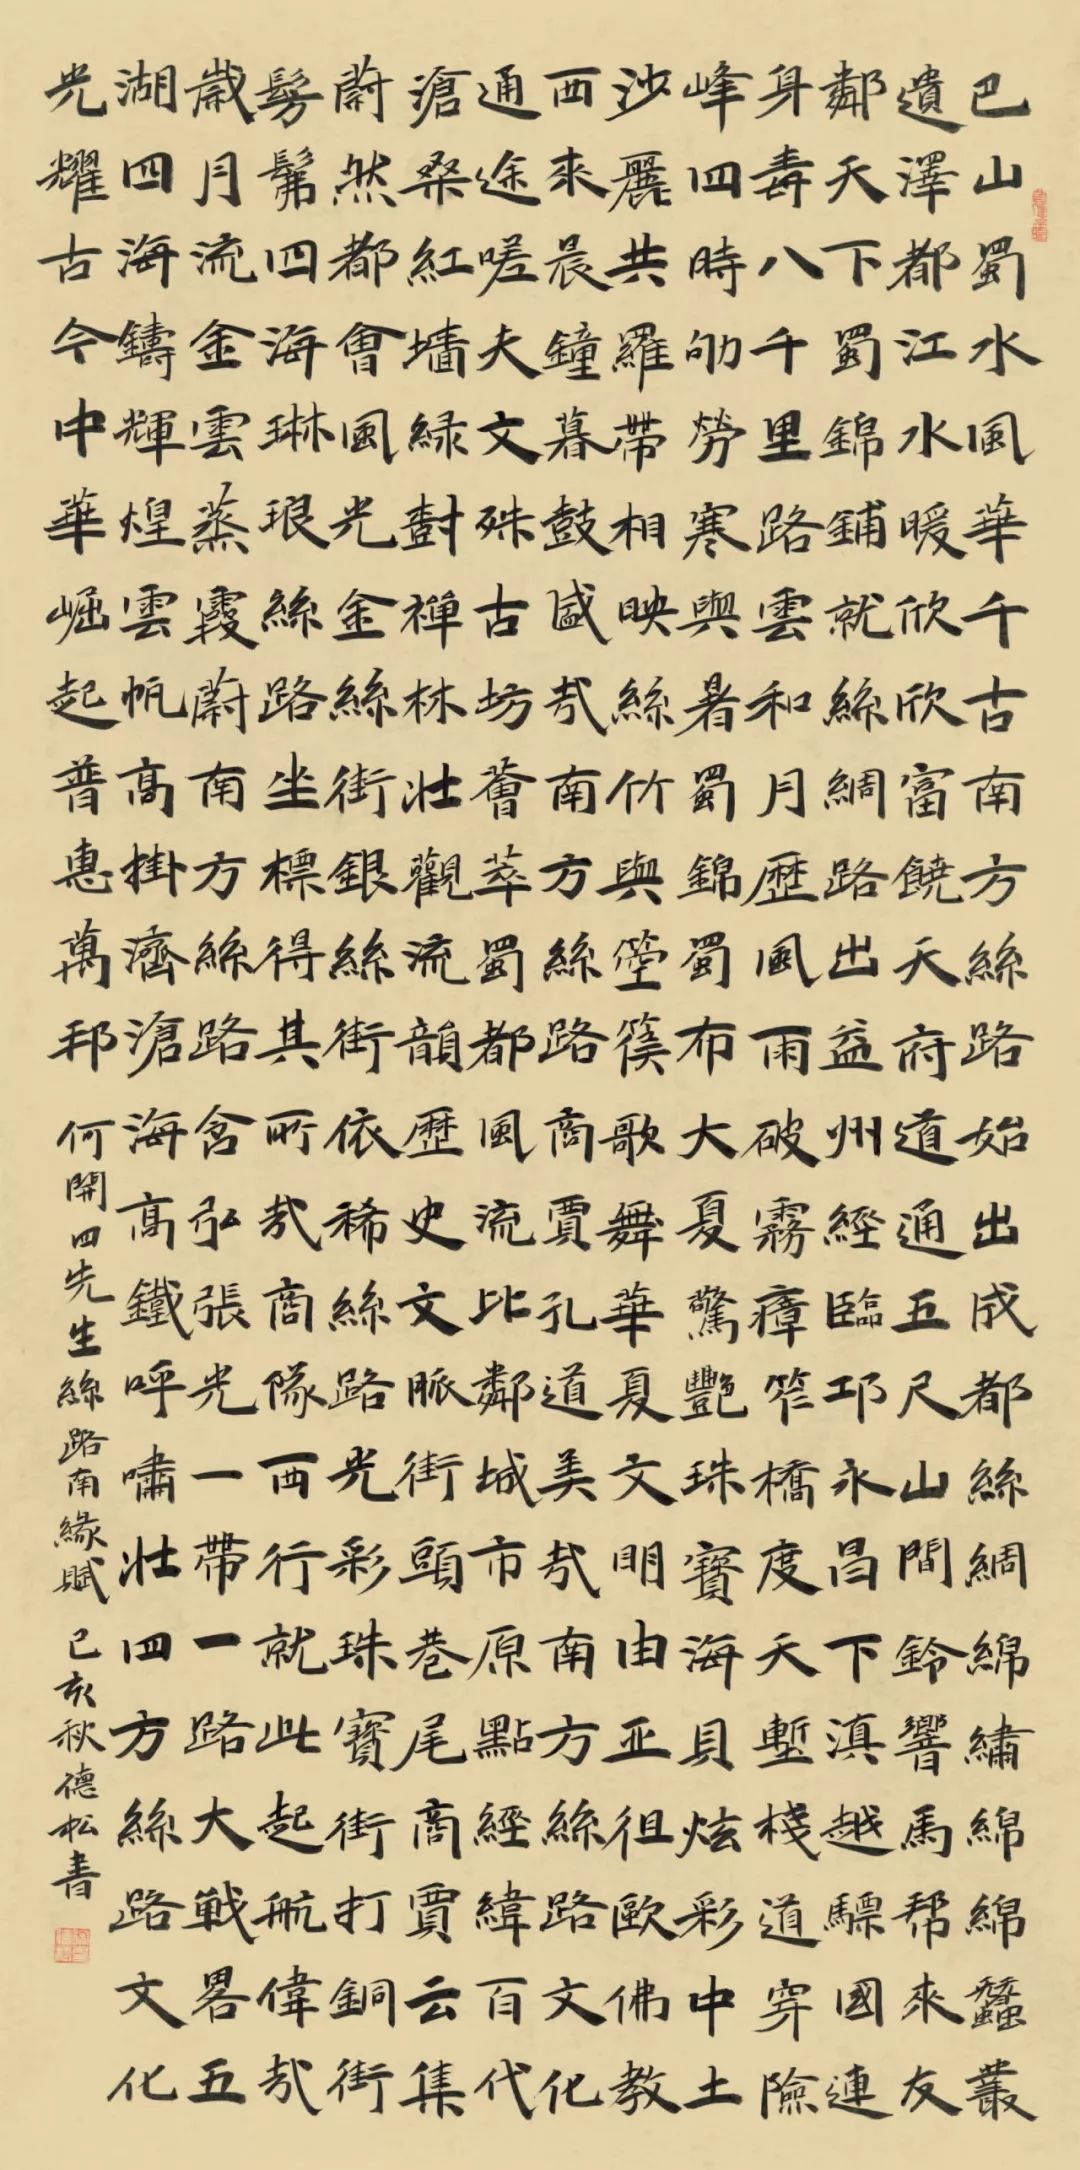 巴山蜀水風華千古南方絲路始出成都絲綢綿繡綿綿蠶叢
遺澤都江水暖欣欣富饒天府道通五尺山間鈴響馬帮來友
鄰天下蜀錦鋪就絲綢路出益州經臨邛永昌下滇越驃國連
身毒八千里路雲和月歷風雨破霧瘴笮橋度天塹棧道穿險
峰四時劬勞寒與暑蜀錦蜀布大夏驚艷珠寶海貝炫彩中土
沙麗共羅帶相映絲竹與箜篌歌舞華夏文明由亞徂歐佛教
西來晨鐘暮鼓盛哉南方絲路商賈孔道美哉南方絲路文化
通途嗟夫文殊古坊薈萃蜀都風流比鄰城市原點經緯百代
滄桑紅墻緑樹禪林壯觀流韻歷史文脈街頭巷尾商賈云集
蔚然都會風光金絲街銀絲街依稀絲路光彩珠寶街打銅街
髣髴四海琳琅絲路坐標得其所哉商隊西行就此起航偉哉
歲月流金雲蒸霞蔚南方絲路含弘張光一帶一路大戰畧五
湖四海鑄輝煌雲帆高掛濟滄海高鐵呼嘯壯四方絲路文化
光耀古今中華崛起普惠萬邦 何開四先生絲路南緣賦己亥秋德松書